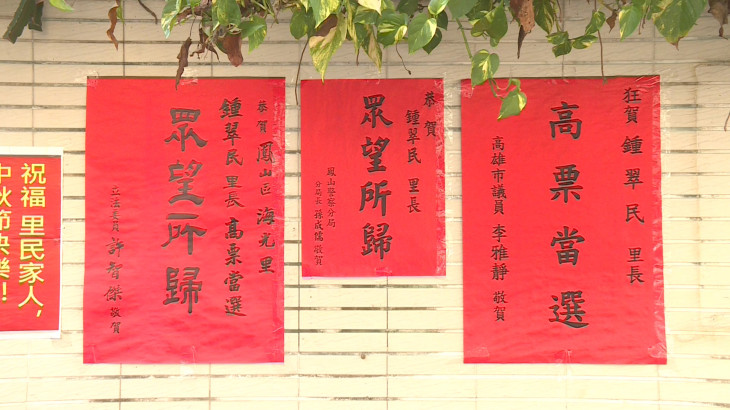 狂賀 鍾翠民 里長
高票當選
高雄市議員 李雅靜 敬賀
恭賀
鍾翠民 里長
眾望所歸
鳳山警察分局
分局長 孫成儒 敬賀
恭賀 鳳山區 海光里
鍾翠民 里長 高票當選
眾望所歸
立法委員 許智傑 敬賀
祝福里民家人,
中秋節快樂!